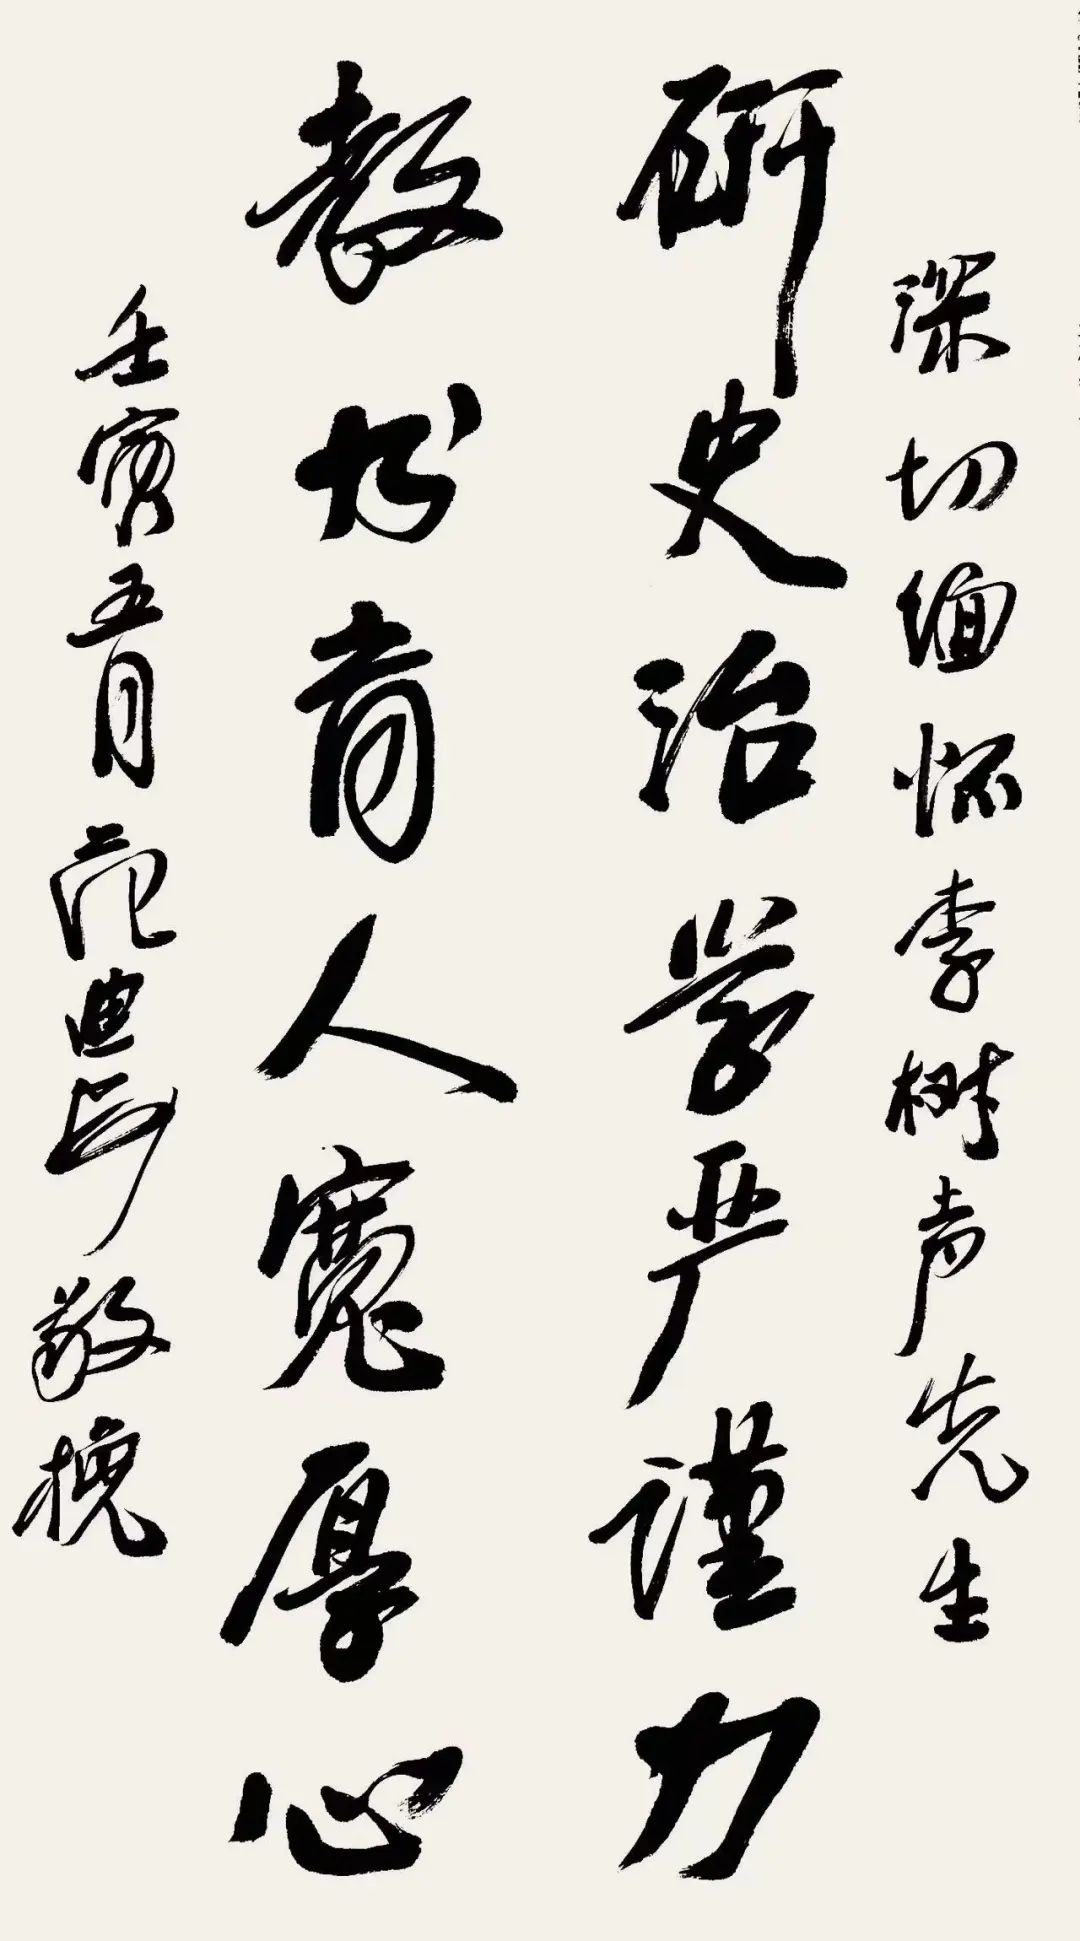 深切缅怀李树声先生
研史治学严谨力
教书育人寬厚心
壬寅五月范迪安敬挽